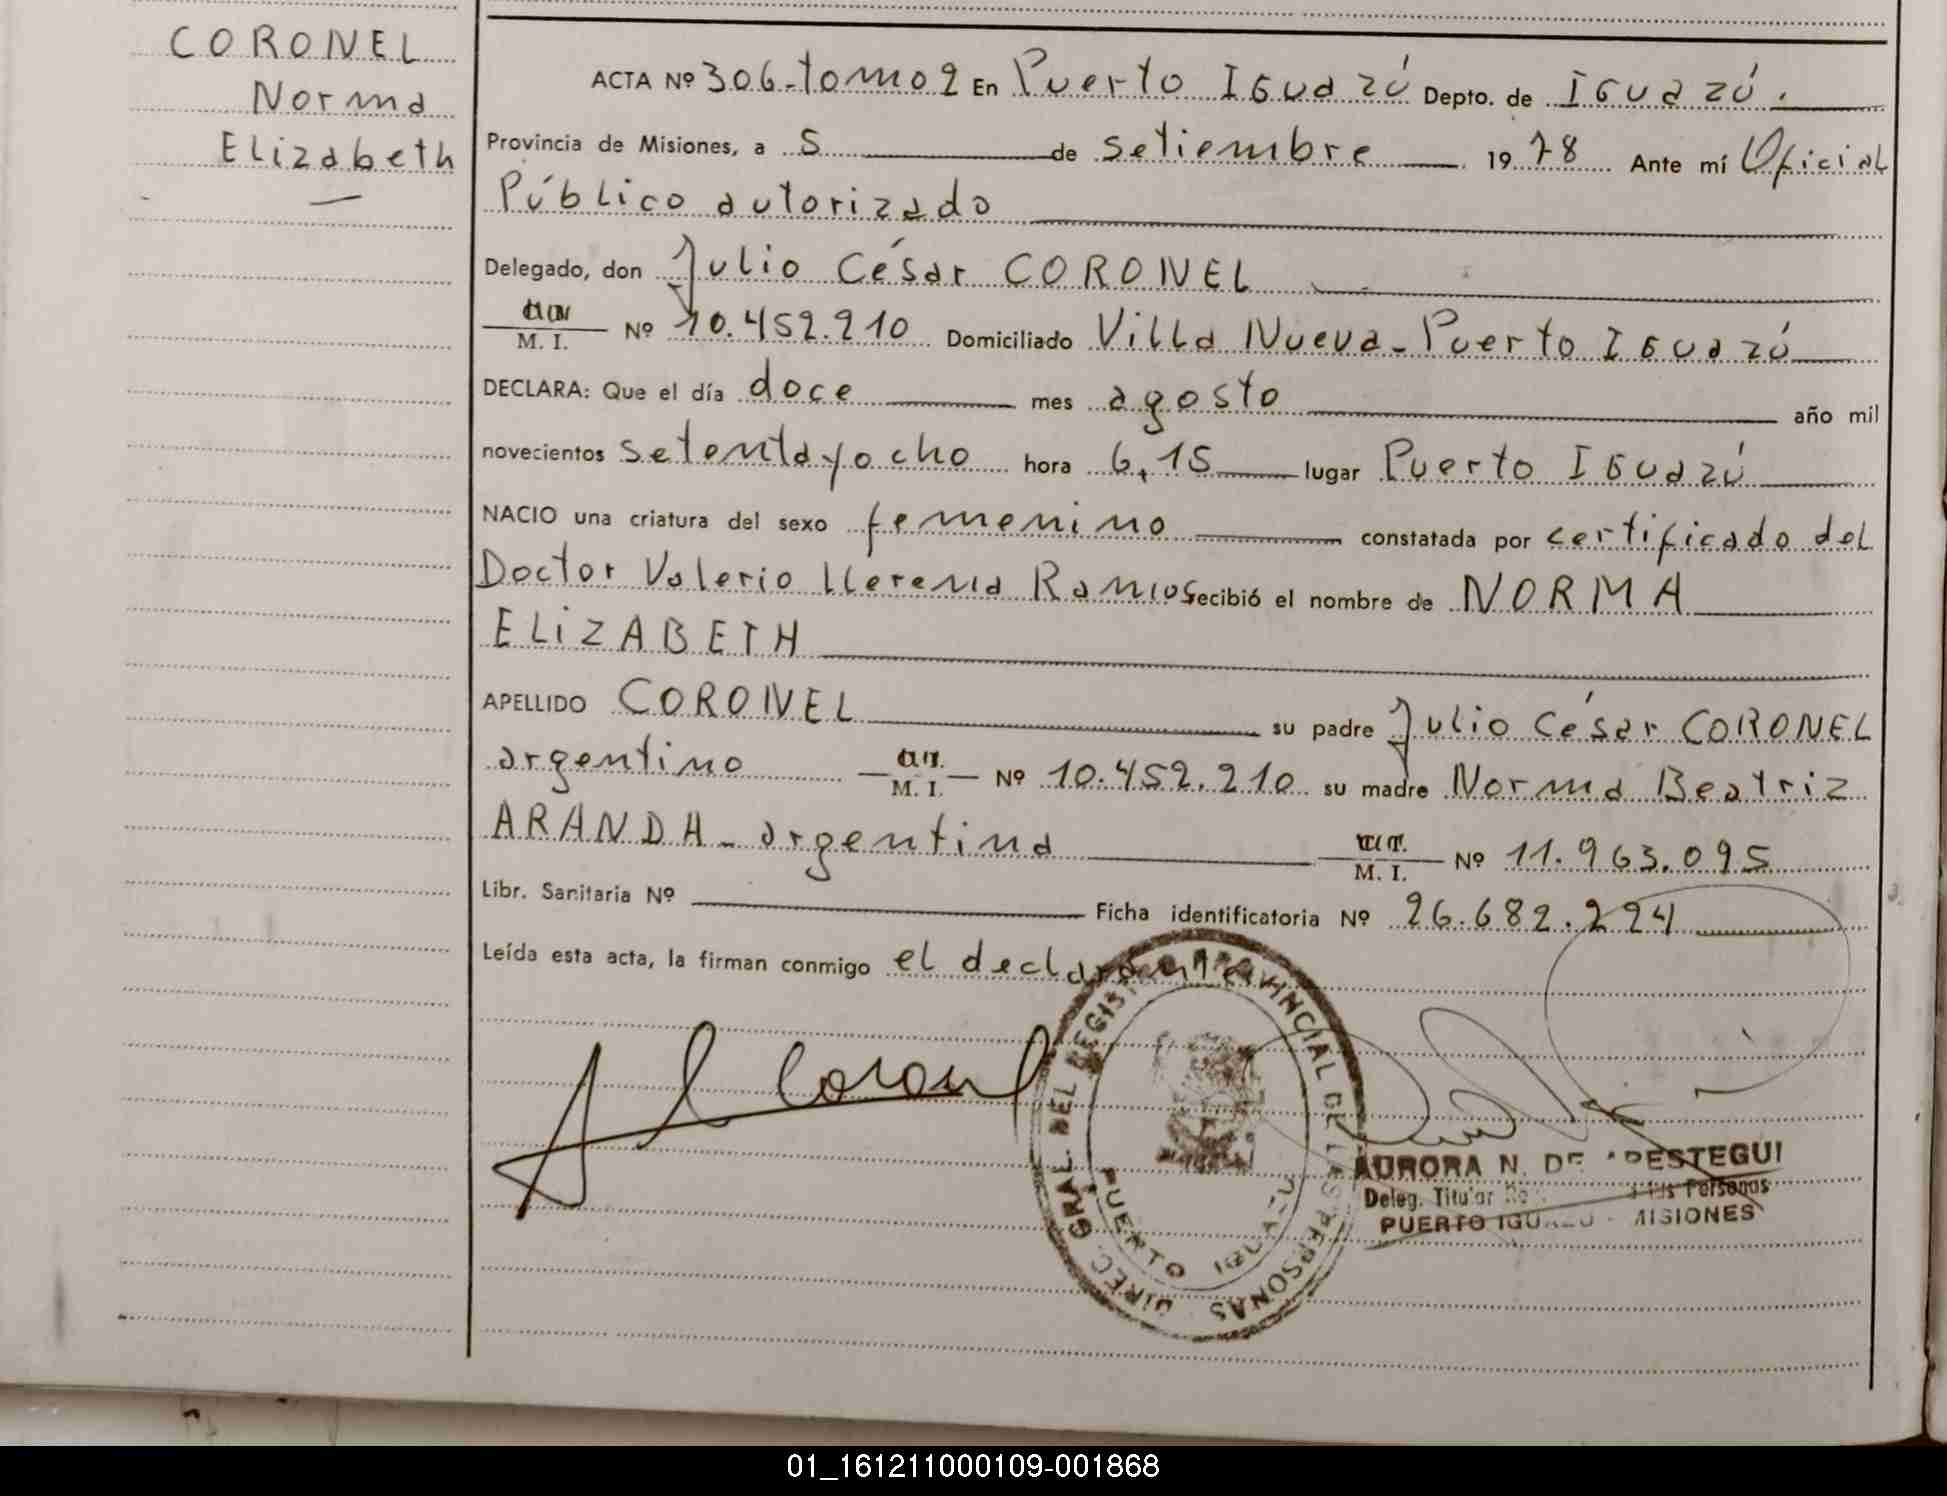 CORONEL
Norma
Elizabeth
ACTA Nº 306-tomo 2 En Puerto IGUAZÚ Depto. de IGUAZÚ.
Provincia de Misiones, a 5 de setiembre 1978 Ante mí Oficial
Público autorizado
Delegado, don Julio César CORONEL
M. I. Nº 10.452.210 Domiciliado Villa Nueva - Puerto IGUAZÚ
DECLARA: Que el día doce mes agosto año mil
novecientos setentayocho hora 6,15 lugar Puerto IGUAZÚ
NACIO una criatura del sexo femenino constatada por certificado del
Doctor Valerio Llerena Ramos recibió el nombre de NORMA
ELIZABETH
APELLIDO CORONEL su padre Julio César CORONEL
argentino M. I. Nº 10.452.210 su madre Norma Beatriz
ARANDA - argentina M. I. Nº 11.963.095
Libr. Sanitaria Nº Ficha identificatoria Nº 26.682.224
Leída esta acta, la firman conmigo el declarante
Coronel
DIREC. GRAL. DEL REGISTRO PROVINCIAL DE LAS PERSONAS
PUERTO IGUAZU
AURORA N. DE APESTEGUI
Deleg. Titular las Personas
PUERTO IGUAZU - MISIONES
01_161211000109-001868